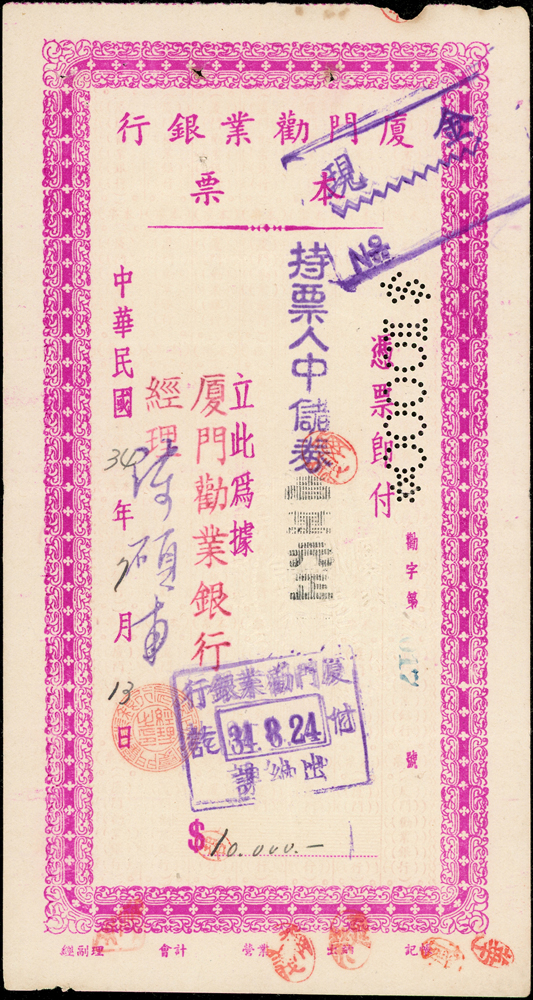 廈門勸業銀行
本票
現金
No.
$10000※
憑票即付
勸字第 017 號
持票人中儲券
壹萬元正
立此爲據
廈門勸業銀行
經理
中華民國34年7月13日
廈門勸業銀行
付訖
34. 8. 24
出納課
$10.000.—
經副理
會計
營業
出納
記帳